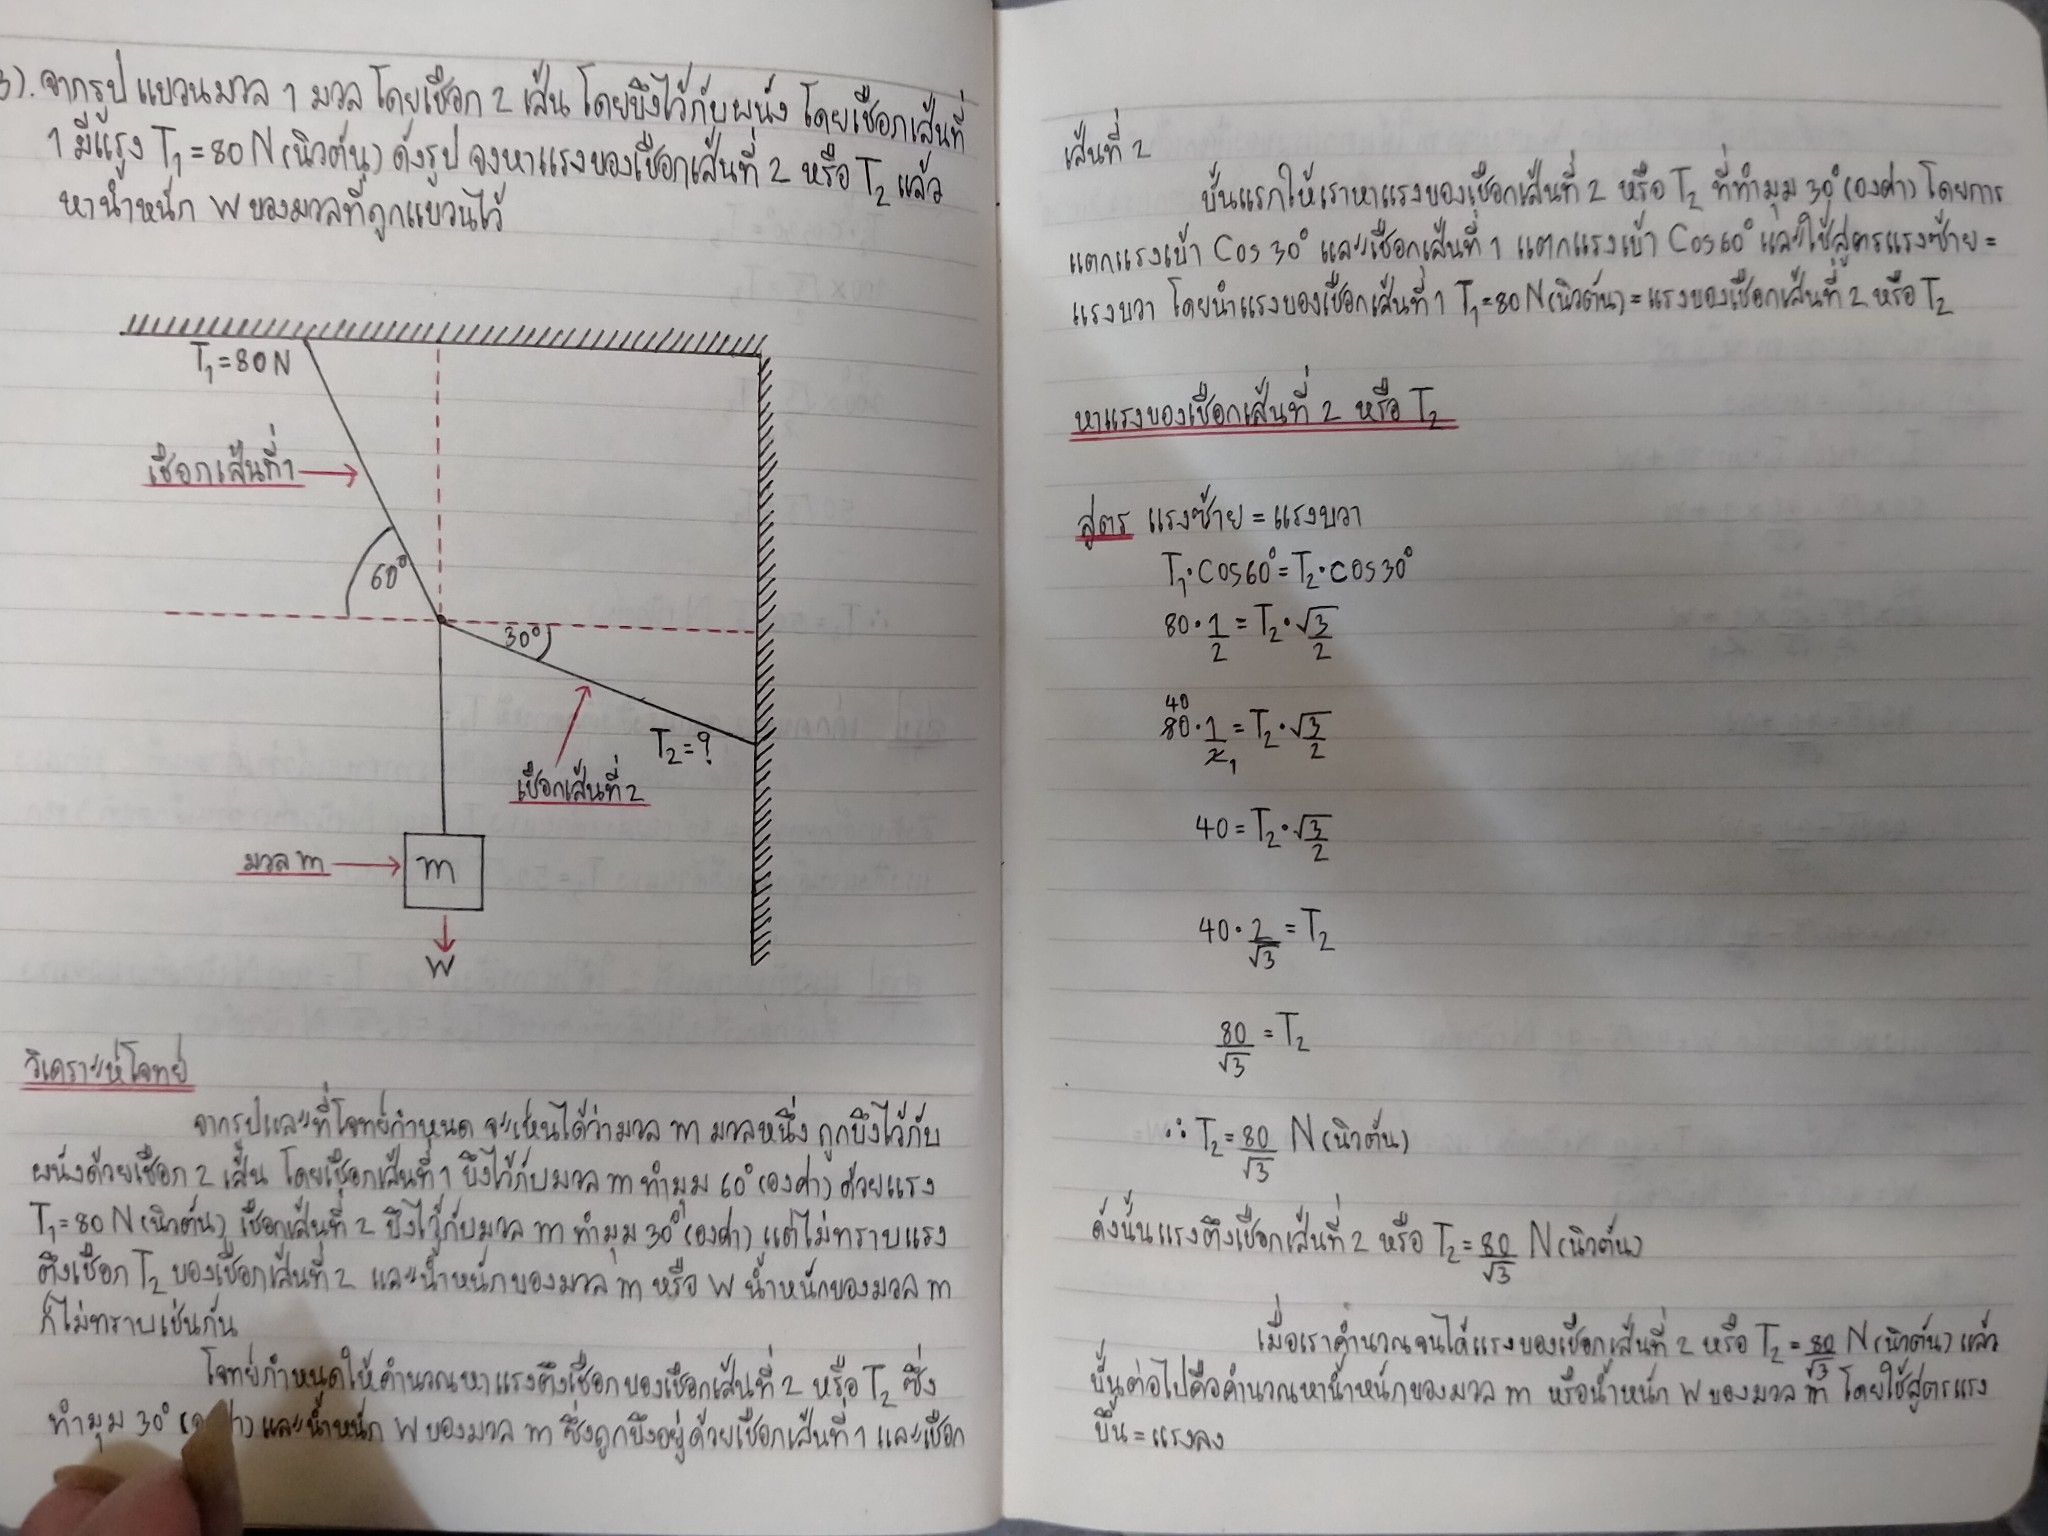 3). จากรูป แขวนมวล 1 มวล โดยเชือก 2 เส้น โดยขึงไว้กับผนัง โดยเชือกเส้นที่
1 มีแรง T₁ = 80 N (นิวตัน) ดังรูป จงหาแรงของเชือกเส้นที่ 2 หรือ T₂ แล้ว
หาน้ำหนัก W ของมวลที่ถูกแขวนไว้
T₁ = 80 N
เชือกเส้นที่ 1
60°
30°
T₂ = ?
เชือกเส้นที่ 2
มวล m
m
W
วิเคราะห์โจทย์
จากรูปและที่โจทย์กำหนด จะเห็นได้ว่ามวล m มวลหนึ่ง ถูกขึงไว้กับ
ผนังด้วยเชือก 2 เส้น โดยเชือกเส้นที่ 1 ขึงไว้กับมวล m ทำมุม 60° (องศา) ด้วยแรง
T₁ = 80 N (นิวตัน) เชือกเส้นที่ 2 ขึงไว้กับมวล m ทำมุม 30° (องศา) แต่ไม่ทราบแรง
ตึงเชือก T₂ ของเชือกเส้นที่ 2 และน้ำหนักของมวล m หรือ W น้ำหนักของมวล m
ก็ไม่ทราบเช่นกัน
โจทย์กำหนดให้คำนวณหาแรงตึงเชือกของเชือกเส้นที่ 2 หรือ T₂ ซึ่ง
ทำมุม 30° และน้ำหนัก W ของมวล m ซึ่งถูกขึงอยู่ด้วยเชือกเส้นที่ 1 และเชือก
เส้นที่ 2
ขั้นแรกให้เราหาแรงของเชือกเส้นที่ 2 หรือ T₂ ที่ทำมุม 30° (องศา) โดยการ
แตกแรงเข้า Cos 30° และเชือกเส้นที่ 1 แตกแรงเข้า Cos 60° และใช้สูตรแรงซ้าย =
แรงขวา โดยนำแรงของเชือกเส้นที่ 1 T₁ = 80 N (นิวตัน) = แรงของเชือกเส้นที่ 2 หรือ T₂
หาแรงของเชือกเส้นที่ 2 หรือ T₂
สูตร แรงซ้าย = แรงขวา
T₁ · Cos 60° = T₂ · cos 30°
80 · 1/2 = T₂ · √3/2
40
80 · 1/2 1 = T₂ · √3/2
40 = T₂ · √3/2
40 · 2/√3 = T₂
80/√3 = T₂
∴ T₂ = 80/√3 N (นิวตัน)
ดังนั้นแรงตึงเชือกเส้นที่ 2 หรือ T₂ = 80/√3 N (นิวตัน)
เมื่อเราคำนวณจนได้แรงของเชือกเส้นที่ 2 หรือ T₂ = 80/√3 N (นิวตัน) แล้ว
ขั้นต่อไปคือคำนวณหาน้ำหนักของมวล m หรือน้ำหนัก W ของมวล m โดยใช้สูตรแรง
ขึ้น = แรงลง